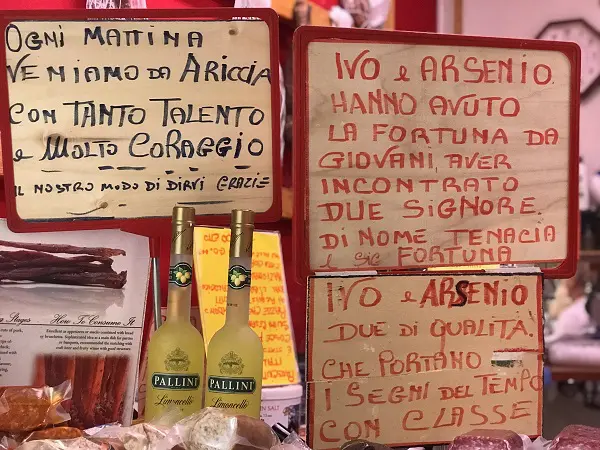 OGNI MATTINA
VENIAMO DA ARICCIA
CON TANTO TALENTO
e MOLTO CORAGGIO
IL NOSTRO MODO DI DIRVI GRAZIE
IVO e ARSENIO
HANNO AVUTO
LA FORTUNA DA
GIOVANI, AVER
INCONTRATO
DUE SIGNORE
DI NOME TENACIA
e SIG FORTUNA
IVO e ARSENIO
DUE DI QUALITA'
CHE PORTANO
I SEGNI DEL TEMPO
CON CLASSE
Stages
How To Consume It
PALLINI
Limoncello
PALLINI
Limoncello